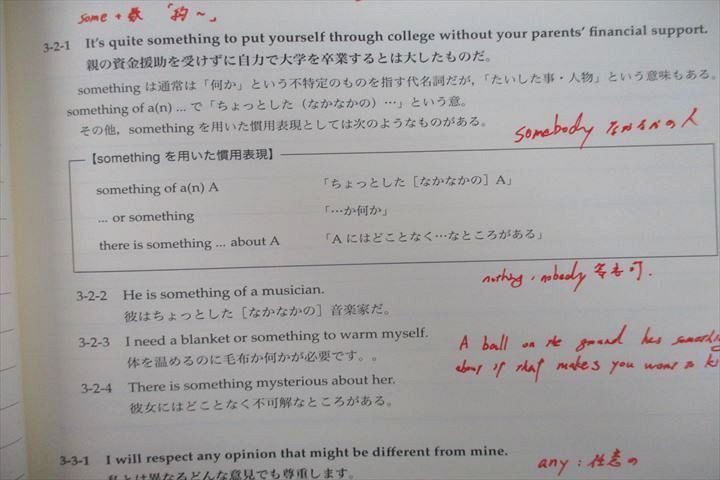 some + 数 「約〜」
3-2-1 It's quite something to put yourself through college without your parents' financial support.
親の資金援助を受けずに自力で大学を卒業するとは大したものだ。
something は通常は「何か」という不特定のものを指す代名詞だが，「たいした事・人物」という意味もある。
something of a(n) ... で「ちょっとした（なかなかの）…」という意。
その他，something を用いた慣用表現としては次のようなものがある。
somebody なかなかの人
【something を用いた慣用表現】
something of a(n) A 「ちょっとした［なかなかの］A」
... or something 「…か何か」
there is something ... about A 「A にはどことなく…なところがある」
nothing, nobody 等も可.
3-2-2 He is something of a musician.
彼はちょっとした［なかなかの］音楽家だ。
3-2-3 I need a blanket or something to warm myself.
体を温めるのに毛布か何かが必要です。。
A ball on the ground has something
about it that makes you want to
3-2-4 There is something mysterious about her.
彼女にはどことなく不可解なところがある。
3-3-1 I will respect any opinion that might be different from mine.
any : 任意の
私とは異なるどんな意見でも尊重します。